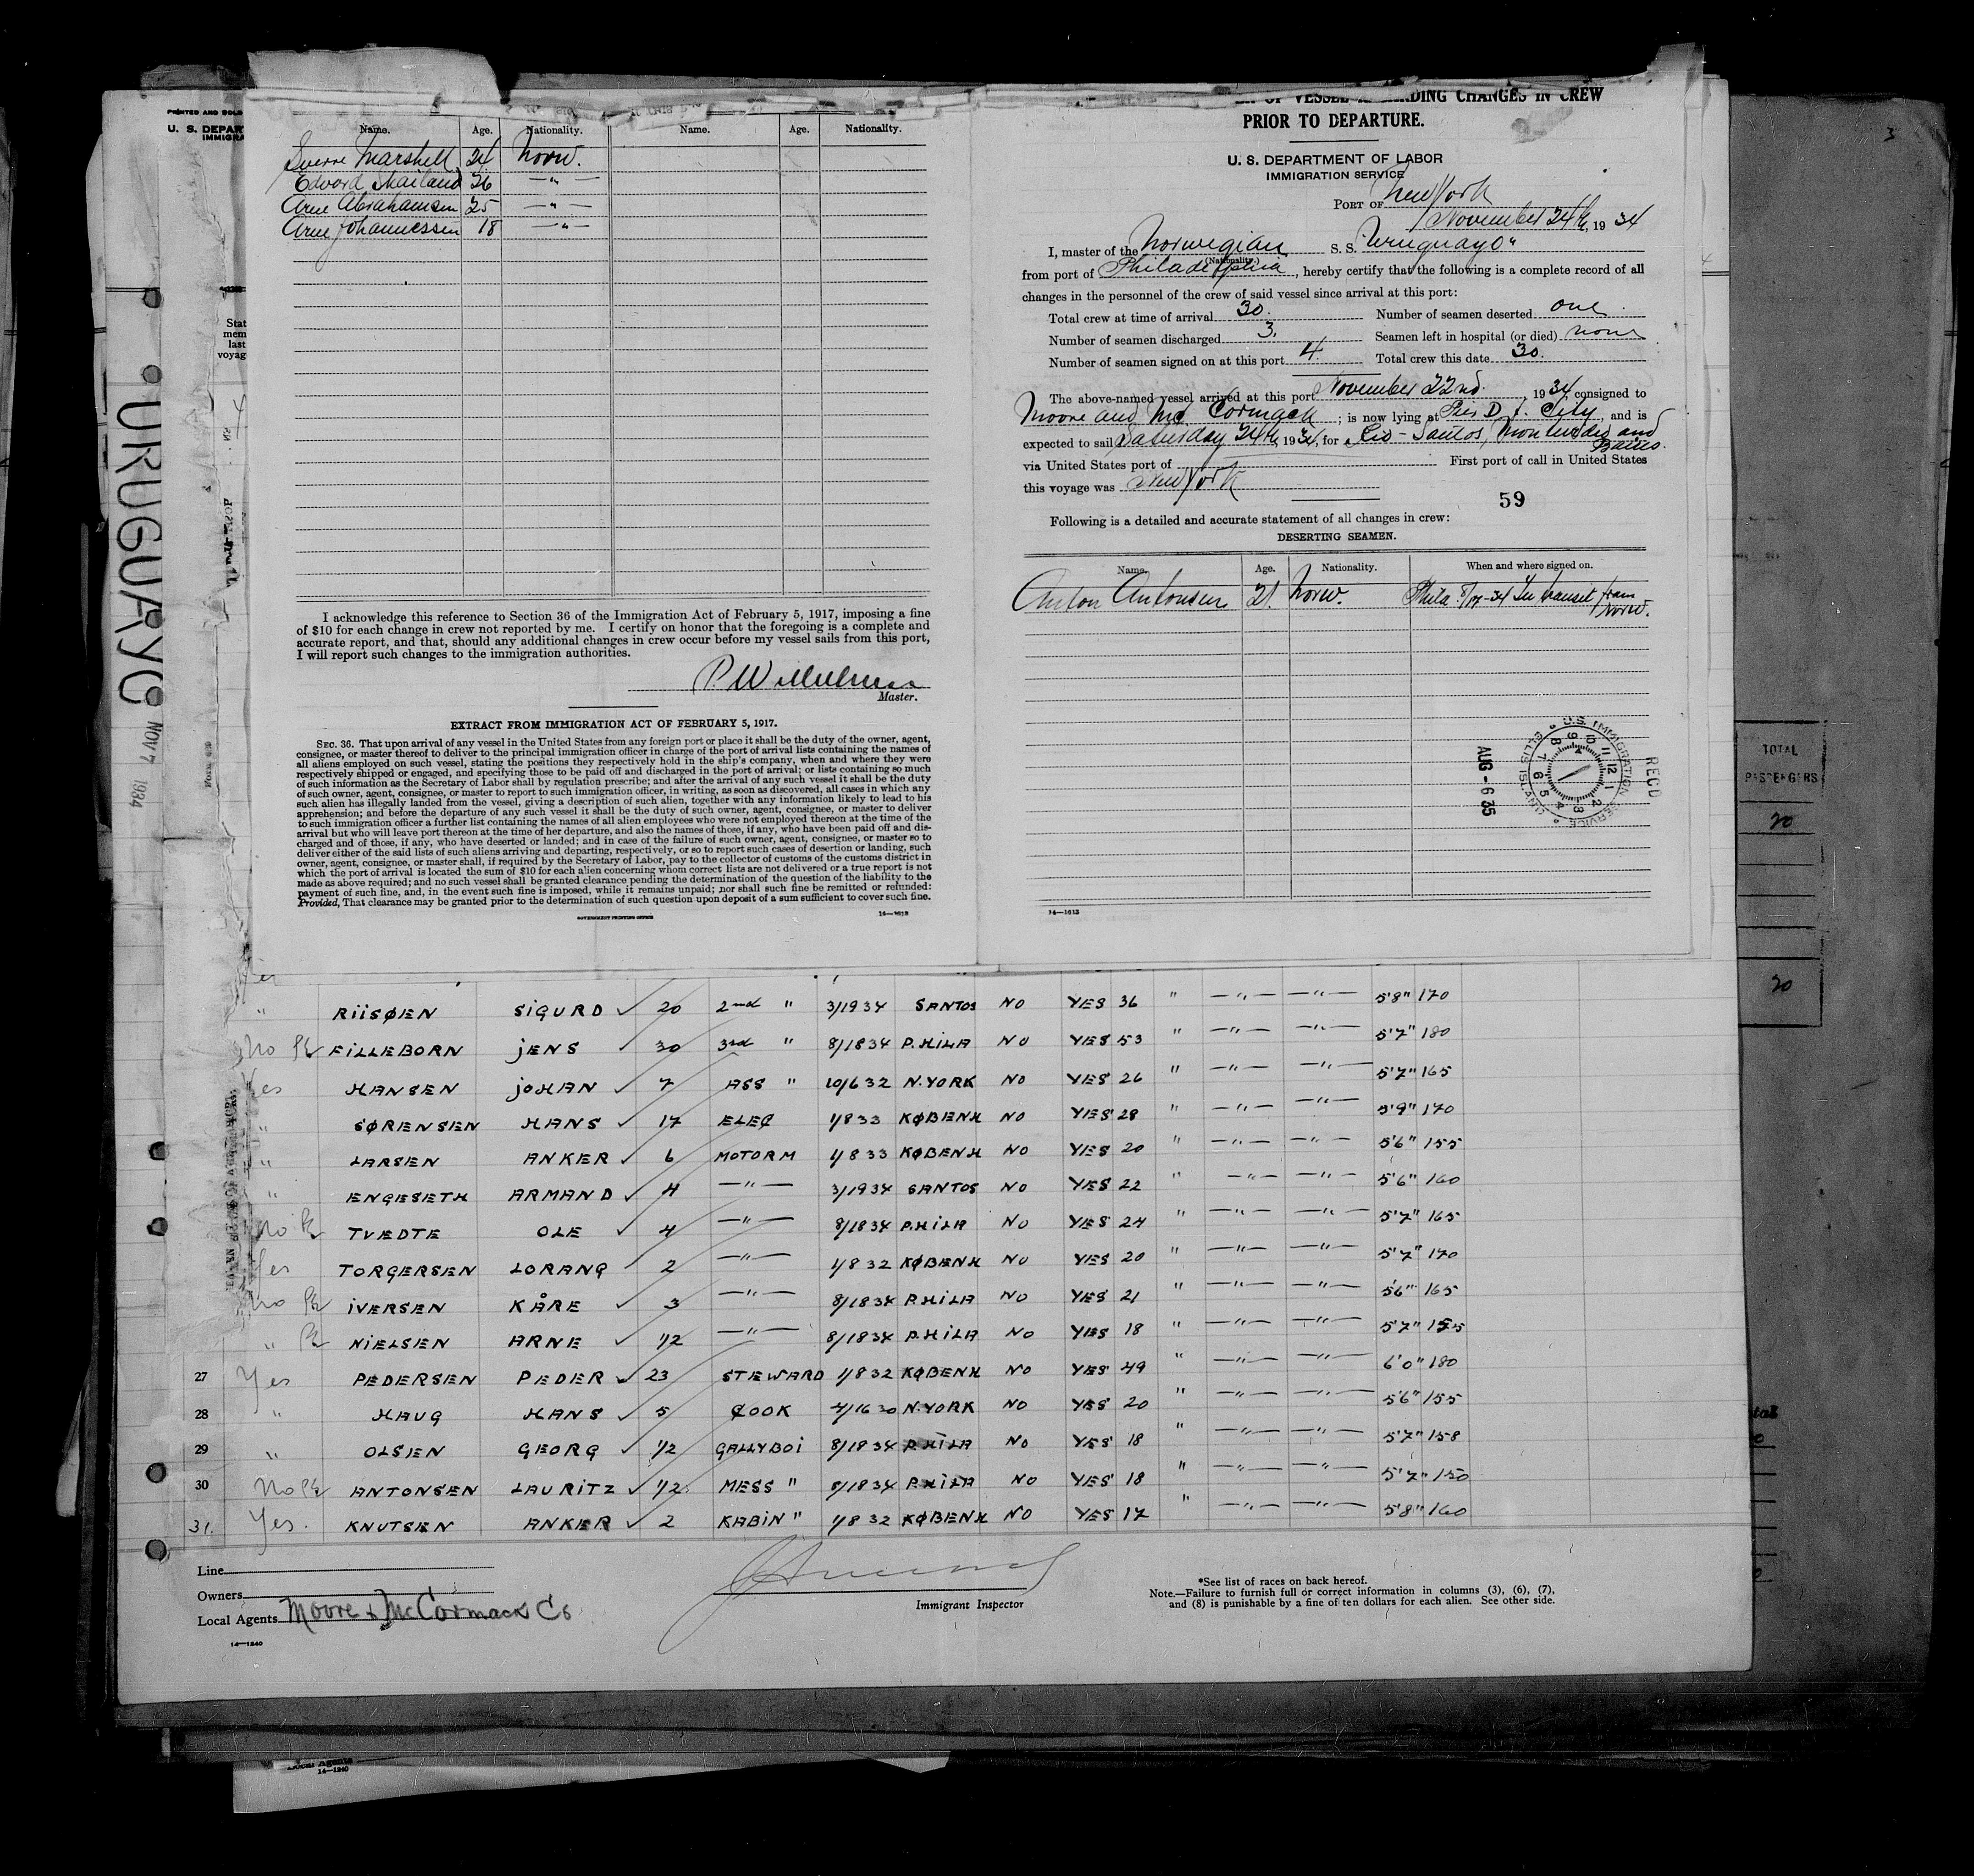 PRINTED AND SOLD
U. S. DEPAR
IMMIGRA
Name. Age. Nationality. Name. Age. Nationality.
Sverre Marshell 24 Norw.
Edvard 26 —"—
Arne Abrahamsen 25 —"—
Arne Johannessen 18 —"—
Stat
mem
last
voyag
I acknowledge this reference to Section 36 of the Immigration Act of February 5, 1917, imposing a fine
of $10 for each change in crew not reported by me. I certify on honor that the foregoing is a complete and
accurate report, and that, should any additional changes in crew occur before my vessel sails from this port,
I will report such changes to the immigration authorities.
Master.
EXTRACT FROM IMMIGRATION ACT OF FEBRUARY 5, 1917.
SEC. 36. That upon arrival of any vessel in the United States from any foreign port or place it shall be the duty of the owner, agent,
consignee, or master thereof to deliver to the principal immigration officer in charge of the port of arrival lists containing the names of
all aliens employed on such vessel, stating the positions they respectively hold in the ship's company, when and where they were
respectively shipped or engaged, and specifying those to be paid off and discharged in the port of arrival; or lists containing so much
of such information as the Secretary of Labor shall by regulation prescribe; and after the arrival of any such vessel it shall be the duty
of such owner, agent, consignee, or master to report to such immigration officer, in writing, as soon as discovered, all cases in which any
such alien has illegally landed from the vessel, giving a description of such alien, together with any information likely to lead to his
apprehension; and before the departure of any such vessel it shall be the duty of such owner, agent, consignee, or master to deliver
to such immigration officer a further list containing the names of all alien employees who were not employed thereon at the time of the
arrival but who will leave port thereon at the time of her departure, and also the names of those, if any, who have been paid off and dis-
charged and of those, if any, who have deserted or landed; and in case of the failure of such owner, agent, consignee, or master so to
deliver either of the said lists of such aliens arriving and departing, respectively, or so to report such cases of desertion or landing, such
owner, agent, consignee, or master shall, if required by the Secretary of Labor, pay to the collector of customs of the customs district in
which the port of arrival is located the sum of $10 for each alien concerning whom correct lists are not delivered or a true report is not
made as above required; and no such vessel shall be granted clearance pending the determination of the question of the liability to the
payment of such fine, and, in the event such fine is imposed, while it remains unpaid; nor shall such fine be remitted or refunded:
Provided, That clearance may be granted prior to the determination of such question upon deposit of a sum sufficient to cover such fine.
GOVERNMENT PRINTING OFFICE 14—1613
OF VESSEL REGARDING CHANGES IN CREW
PRIOR TO DEPARTURE.
U. S. DEPARTMENT OF LABOR
IMMIGRATION SERVICE
PORT OF New York
November 24th, 19 34
I, master of the Norwegian S. S. "Uruguayo"
(Nationality.)
from port of Philadelphia, hereby certify that the following is a complete record of all
changes in the personnel of the crew of said vessel since arrival at this port:
Total crew at time of arrival 30. Number of seamen deserted one.
Number of seamen discharged 3. Seamen left in hospital (or died) none
Number of seamen signed on at this port 4. Total crew this date 30.
The above-named vessel arrived at this port November 22nd, 19 34, consigned to
Moore and Mc Cormack; is now lying at Pier D J. City, and is
expected to sail Saturday 24th, 19 34, for Rio - Santos, Montevideo and
Baires.
via United States port of First port of call in United States
this voyage was New York
59
Following is a detailed and accurate statement of all changes in crew:
DESERTING SEAMEN.
Name. Age. Nationality. When and where signed on.
Anton Antonsen 21. Norw. Phila. 8/17-34 In transit from
Norw.
REC'D
U.S. IMMIGRATION SERVICE ELLIS ISLAND
AUG - 6 35
14—1613
URUGUAYO NOV 7 1934
3
TOTAL
PASSENGERS
20
20
" RIISØEN SIGURD ✓ 20 2nd " 3/19 34 SANTOS NO YES 36 " —"— —"— 5'8" 170
No FILLEBORN JENS ✓ 30 3rd " 8/18 34 P.HILA NO YES 53 " —"— —"— 5'7" 180
Yes HANSEN JOHAN ✓ 7 ASS " 10/6 32 N.YORK NO YES 26 " —"— —"— 5'7" 165
" SØRENSEN HANS ✓ 17 ELEC 1/8 33 KØBENH NO YES 28 " —"— —"— 5'9" 170
" LARSEN ANKER ✓ 6 MOTORM 1/8 33 KØBENH NO YES 20 " —"— —"— 5'6" 155
" ENGESETH ARMAND ✓ 4 —"— 3/19 34 SANTOS NO YES 22 " —"— —"— 5'6" 160
No TVEDTE OLE ✓ 4 —"— 8/18 34 P.HILA NO YES 24 " —"— —"— 5'7" 165
Yes TORGERSEN LORANG ✓ 2 —"— 1/8 32 KØBENH NO YES 20 " —"— —"— 5'7" 170
No IVERSEN KÅRE ✓ 3 —"— 8/18 34 P.HILA NO YES 21 " —"— —"— 5'6" 165
" NIELSEN ARNE ✓ 1/2 —"— 8/18 34 P.HILA NO YES 18 " —"— —"— 5'7" 155
27 Yes PEDERSEN PEDER ✓ 23 STEWARD 1/8 32 KØBENH NO YES 49 " —"— —"— 6'0" 180
28 " HAUG HANS ✓ 5 COOK 4/16 30 N.YORK NO YES 20 " —"— —"— 5'6" 155
29 " OLSEN GEORG ✓ 1/2 GALLYBOI 8/18 34 P.HILA NO YES 18 " —"— —"— 5'7" 158
30 No ANTONSEN LAURITZ ✓ 1/2 MESS " 8/18 34 P.HILA NO YES 18 " —"— —"— 5'7" 150
31. Yes. KNUTSEN ANKER ✓ 2 KABIN " 1/8 32 KØBENH NO YES 17 " —"— —"— 5'8" 160
Line
Owners
Local Agents Moore & McCormack Co
14—1240
Immigrant Inspector
*See list of races on back hereof.
Note.—Failure to furnish full or correct information in columns (3), (6), (7),
and (8) is punishable by a fine of ten dollars for each alien. See other side.
Local Agents
14—1240